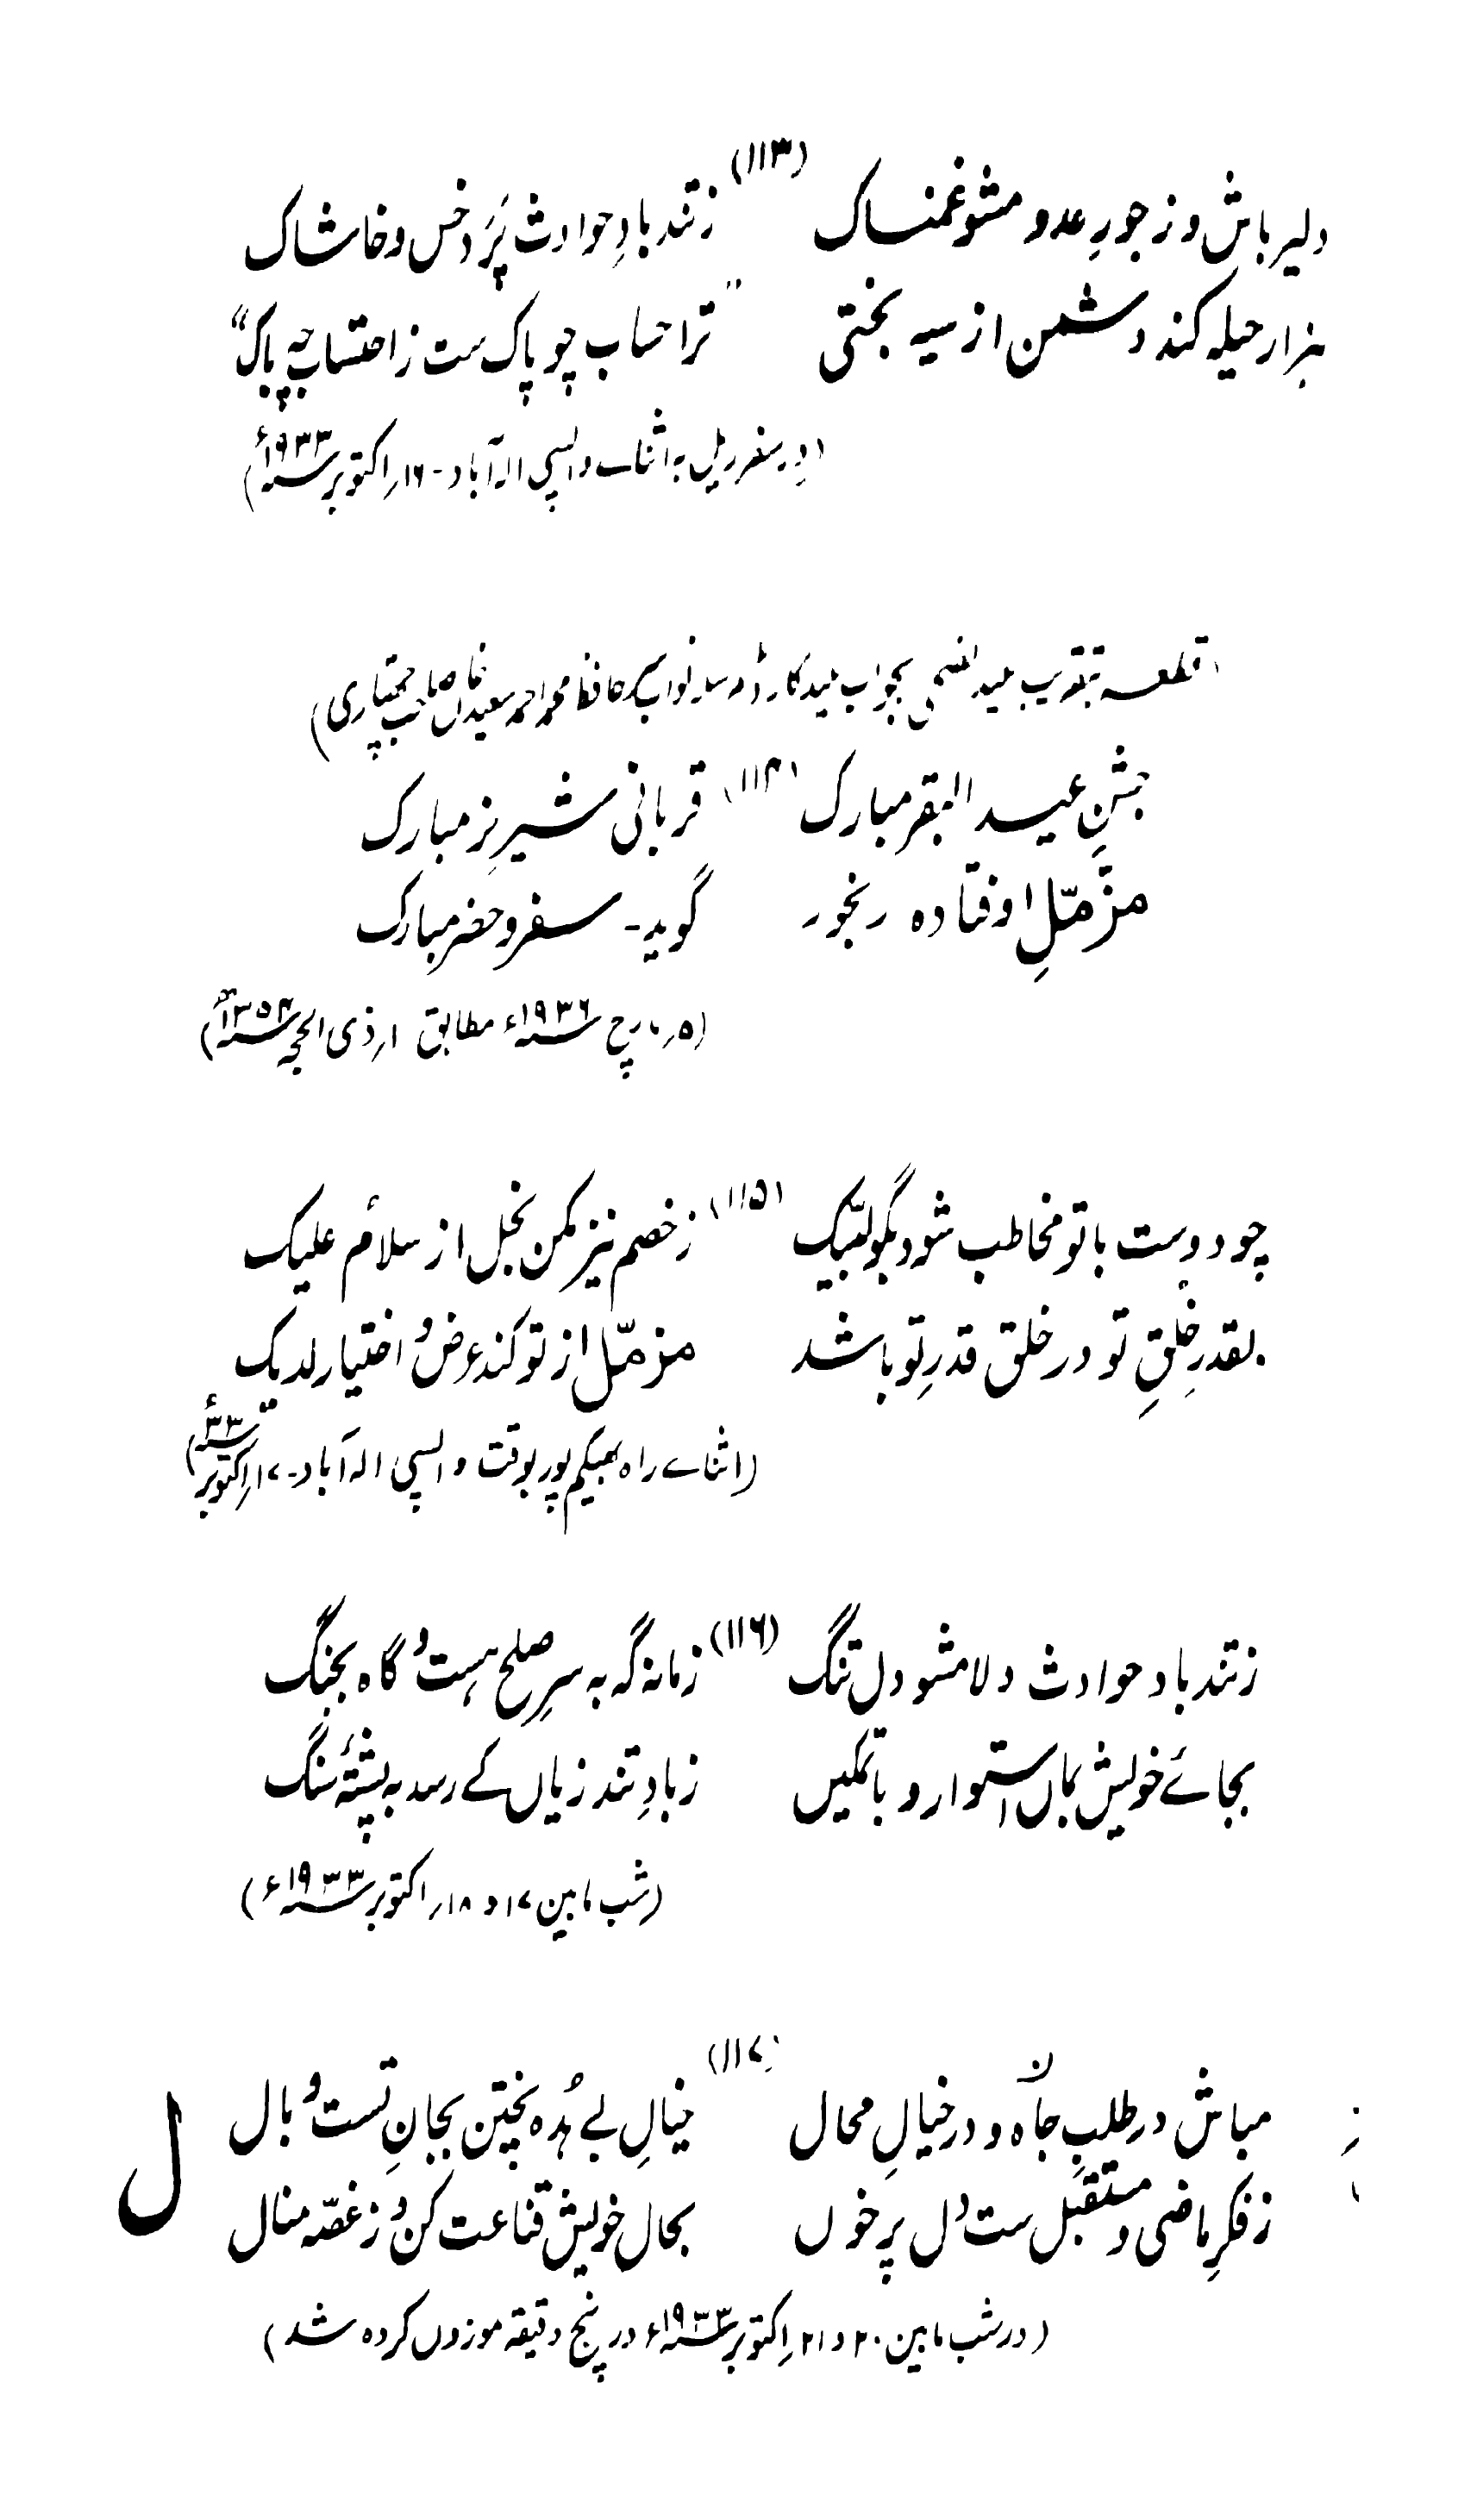 (۱۱۳)
دلیر باش و ز جورِ عدو مشو غمناک زتند بادِ حوادث پُر و خس و خاشاک
ہزار حیلہ کند دشمن از سیہ بختی "ترا حساب چو پاک ست ز احتساب چہ باک"
(در سفر ریل بہ اثناے واپسی الہ آباد - ۱۷ر اکتوبر ۱۹۳۳ء)
(قطعہ بتقریب عید اضحی بجواب عید کارڈ مرسلہ نواب حافظ محمد احمد سعید خاں صاحب چھتاری)
(۱۱۴)
جشنِ عید البقر مبارک قربانی شیرِ نر مبارک
مزمّلِ اوفتادہ رنجور گوید - سفر و حضر مبارک
(۵ر مارچ ۱۹۳۶ء مطابق ۱۰ر ذی الحجہ ۱۳۵۴ھ)
(۱۱۵)
چو دوست با تو مخاطب شود بگو لبّیک ز خصم نیز مکن بخل از سلامُ علیک
بقدرِ خُلقِ تو در خلق قدرِ تو باشد مزمّل از تو کند عرضُ اختیار لدیک
(اثناے راہ بھیکم پور بوقت واپسی الہ آباد - ۱۷ر اکتوبر ۳۳ء)
(۱۱۶)
زتند باد حوادث دلا مشو دل تنگ زمانہ گہ بہ سرِ صلح ہست و گاہ بجنگ
بجائے خویش بماں استوار و با تمکیں زبادِ تند زیاں کے رسد بہ پشتۂ سنگ
(شب مابین ۱۷ و ۱۸ر اکتوبر ۱۹۳۳ء)
(۱۱۷)
مباش در طلبِ جاہ و در خیالِ محال خیالِ بے ہُدہ پختن بجانِ تست وُبال
ز فکرِ ماضی و مستقبل ست دُل پر خوں بحال خویش قناعت کن و ز غصّہ منال
ل
(در شب مابین ۲۰ و ۲۱ر اکتوبر ۱۹۳۳ء در پنج دقیقہ موزوں کردہ شد)